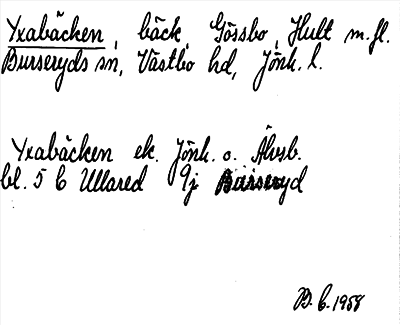 Yxabäcken, bäck, Gössbo, Hult m.fl.
Burseryds sn, Västbo hd, Jönk. l.
Yxabäcken ek. Jönk. o. Älvsb.
bl. 5 C Ullared 9j Burseryd
B.C. 1958